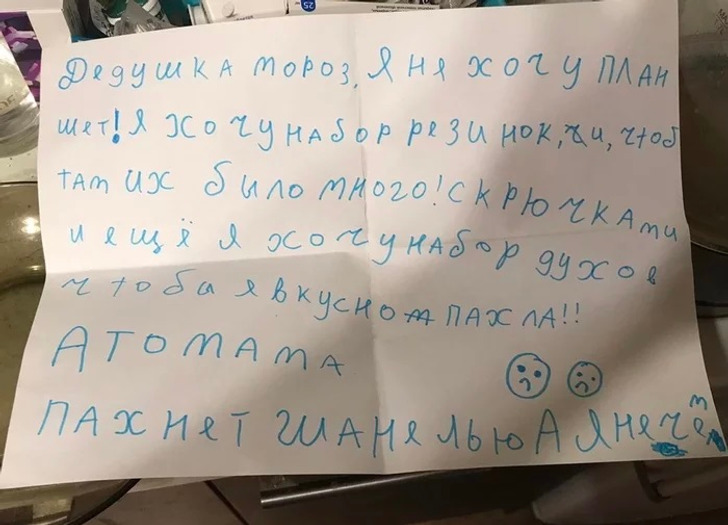 25
ДЕДУШКА МОРОЗ, Я НЯ ХОЧУ ПЛАН
ШЕТ! Я ХОЧУ НАБОР РЕЗИНОК, ЧТОБ
ТАМ ИХ БЫЛО МНОГО! С КРЮЧКАМИ
И ЕЩЁ Я ХОЧУ НАБОР ДУХОВ
ЧТОБЫ Я ВКУСНО ПАХЛА!!
А ТО МАМА
ПАХНЕТ ШАНЕЛЬЮ А Я НЕЧЕМ